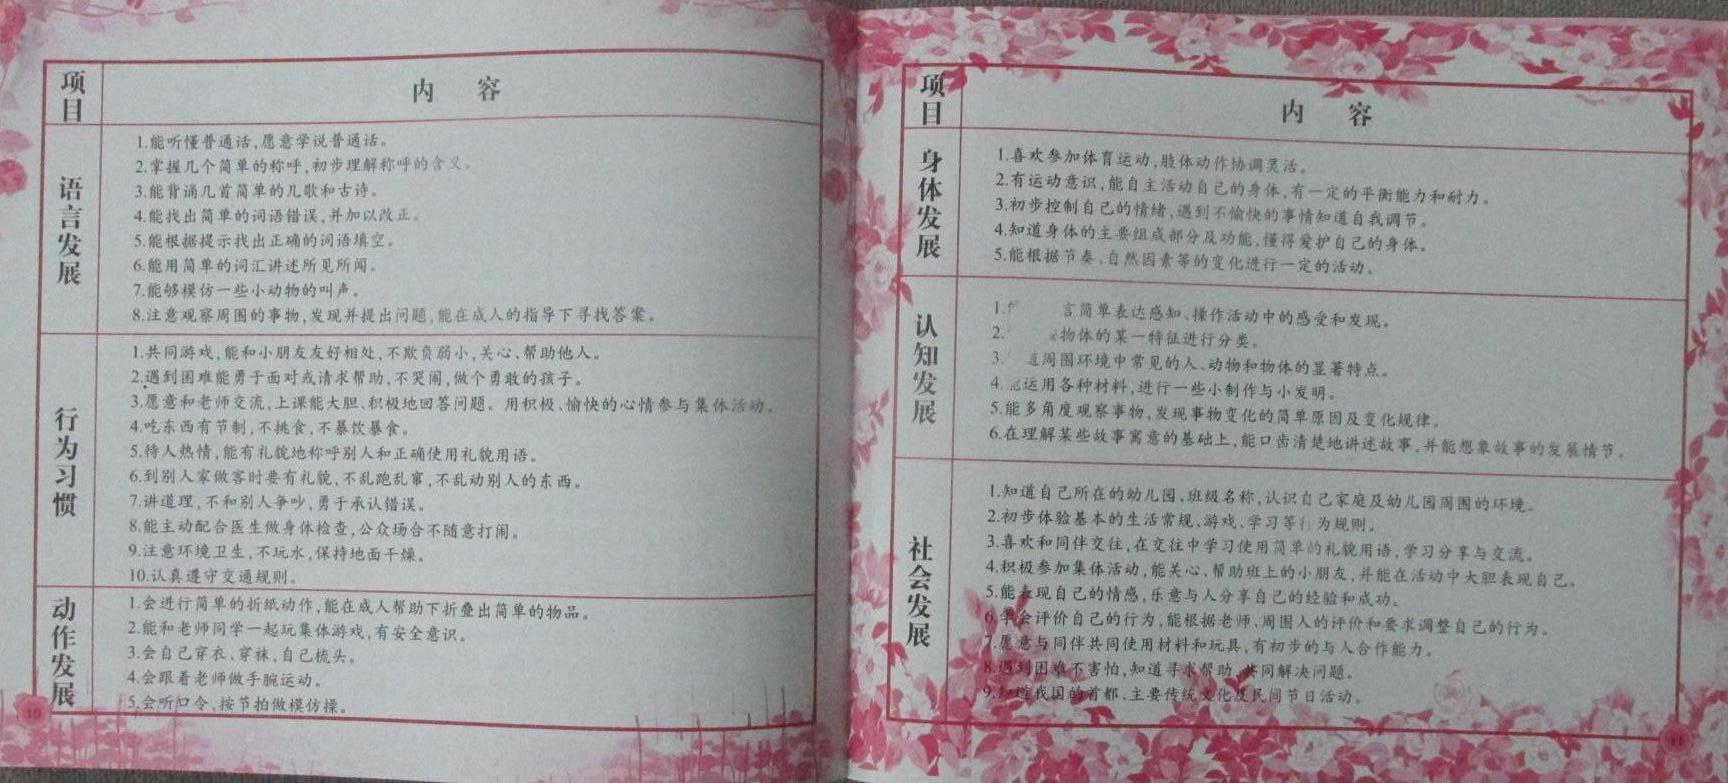 项目
内 容
语言发展
1.能听懂普通话,愿意学说普通话。
2.掌握几个简单的称呼,初步理解称呼的含义。
3.能背诵几首简单的儿歌和古诗。
4.能找出简单的词语错误,并加以改正。
5.能根据提示找出正确的词语填空。
6.能用简单的词汇讲述所见所闻。
7.能够模仿一些小动物的叫声。
8.注意观察周围的事物,发现并提出问题,能在成人的指导下寻找答案。
行为习惯
1.共同游戏,能和小朋友友好相处,不欺负弱小,关心、帮助他人。
2.遇到困难能勇于面对或请求帮助,不哭闹,做个勇敢的孩子。
3.愿意和老师交流,上课能大胆、积极地回答问题。用积极、愉快的心情参与集体活动。
4.吃东西有节制,不挑食,不暴饮暴食。
5.待人热情,能有礼貌地称呼别人和正确使用礼貌用语。
6.到别人家做客时要有礼貌,不乱跑乱窜,不乱动别人的东西。
7.讲道理,不和别人争吵,勇于承认错误。
8.能主动配合医生做身体检查,公众场合不随意打闹。
9.注意环境卫生,不玩水,保持地面干燥。
10.认真遵守交通规则。
动作发展
1.会进行简单的折纸动作,能在成人帮助下折叠出简单的物品。
2.能和老师同学一起玩集体游戏,有安全意识。
3.会自己穿衣、穿袜,自己梳头。
4.会跟着老师做手腕运动。
5.会听口令,按节拍做模仿操。
10
项目
内 容
身体发展
1.喜欢参加体育运动,肢体动作协调灵活。
2.有运动意识,能自主活动自己的身体,有一定的平衡能力和耐力。
3.初步控制自己的情绪,遇到不愉快的事情知道自我调节。
4.知道身体的主要组成部分及功能,懂得爱护自己的身体。
5.能根据节奏、自然因素等的变化进行一定的活动。
认知发展
1. 言简单表达感知、操作活动中的感受和发现。
2. 物体的某一特征进行分类。
3. 道周围环境中常见的人、动物和物体的显著特点。
4.能运用各种材料,进行一些小制作与小发明。
5.能多角度观察事物,发现事物变化的简单原因及变化规律。
6.在理解某些故事寓意的基础上,能口齿清楚地讲述故事,并能想象故事的发展情节。
社会发展
1.知道自己所在的幼儿园、班级名称,认识自己家庭及幼儿园周围的环境。
2.初步体验基本的生活常规、游戏、学习等行为规则。
3.喜欢和同伴交往,在交往中学习使用简单的礼貌用语,学习分享与交流。
4.积极参加集体活动,能关心、帮助班上的小朋友,并能在活动中大胆表现自己。
5.能表现自己的情感,乐意与人分享自己的经验和成功。
6.学会评价自己的行为,能根据老师、周围人的评价和要求调整自己的行为。
7.愿意与同伴共同使用材料和玩具,有初步的与人合作能力。
8.遇到困难不害怕,知道寻求帮助、共同解决问题。
9.知道我国的首都、主要传统文化及民间节日活动。
11